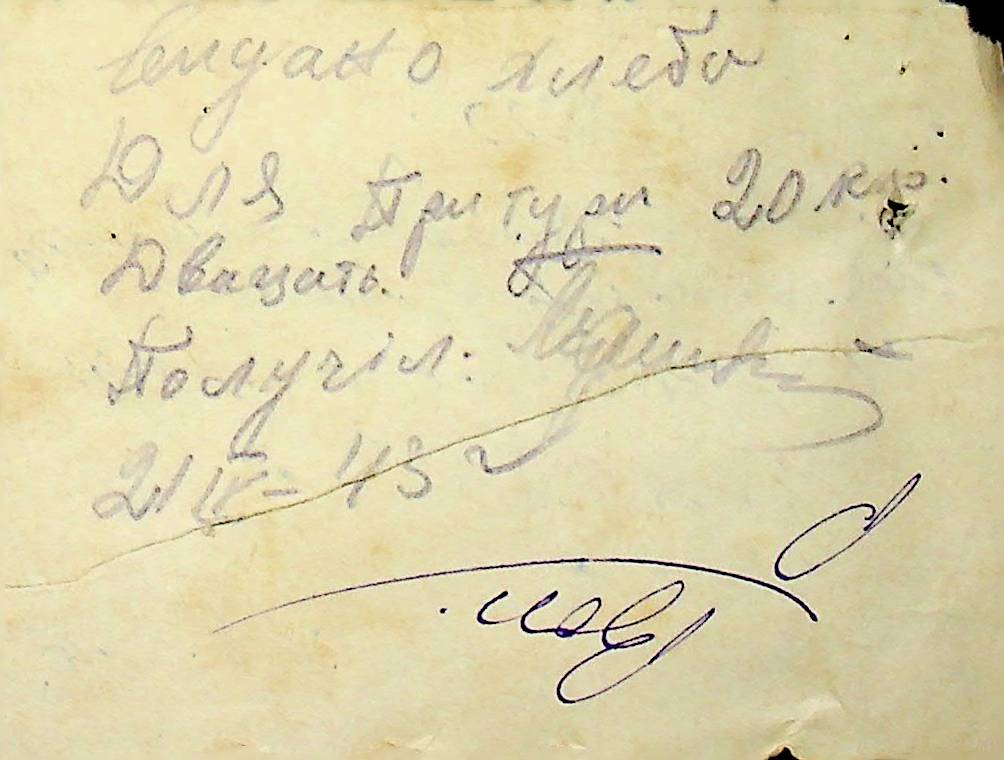 Видано хлеба
Для Притури 20 кгр.
Двацать
Получіл:
21 IX - 43